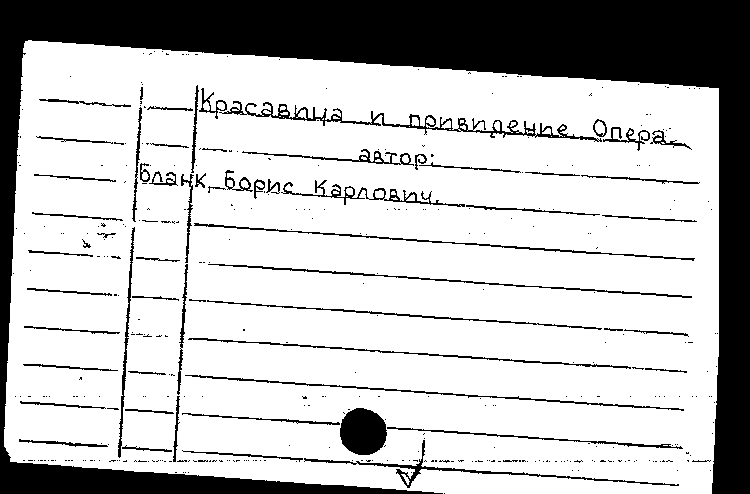 Красавица и привидение. Опера.
автор:
Бланк, Борис Карлович.